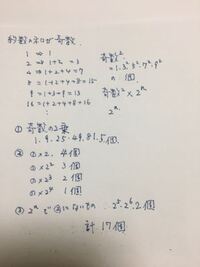 約数の和が奇数.
1 ⇒ 1
2 ⇒ 1+2=3
4 ⇒ 1+2+4=7
8 ⇒ 1+2+4+8=15
9 = 1+3+9=13
16=1+2+4+8+16
⋮
奇数²
=1.3².5².7².9²
の 個.
奇数²×2ⁿ
2ⁿ.
① 奇数の2乗
1.9.25.49.81.5個.
② ①×2. 4個
①×2² 3個
①×2³ 2個
①×2⁴ 1個
③ 2ⁿで②にないもの ∴2⁵.2⁶.2個
∴ 計.17個.